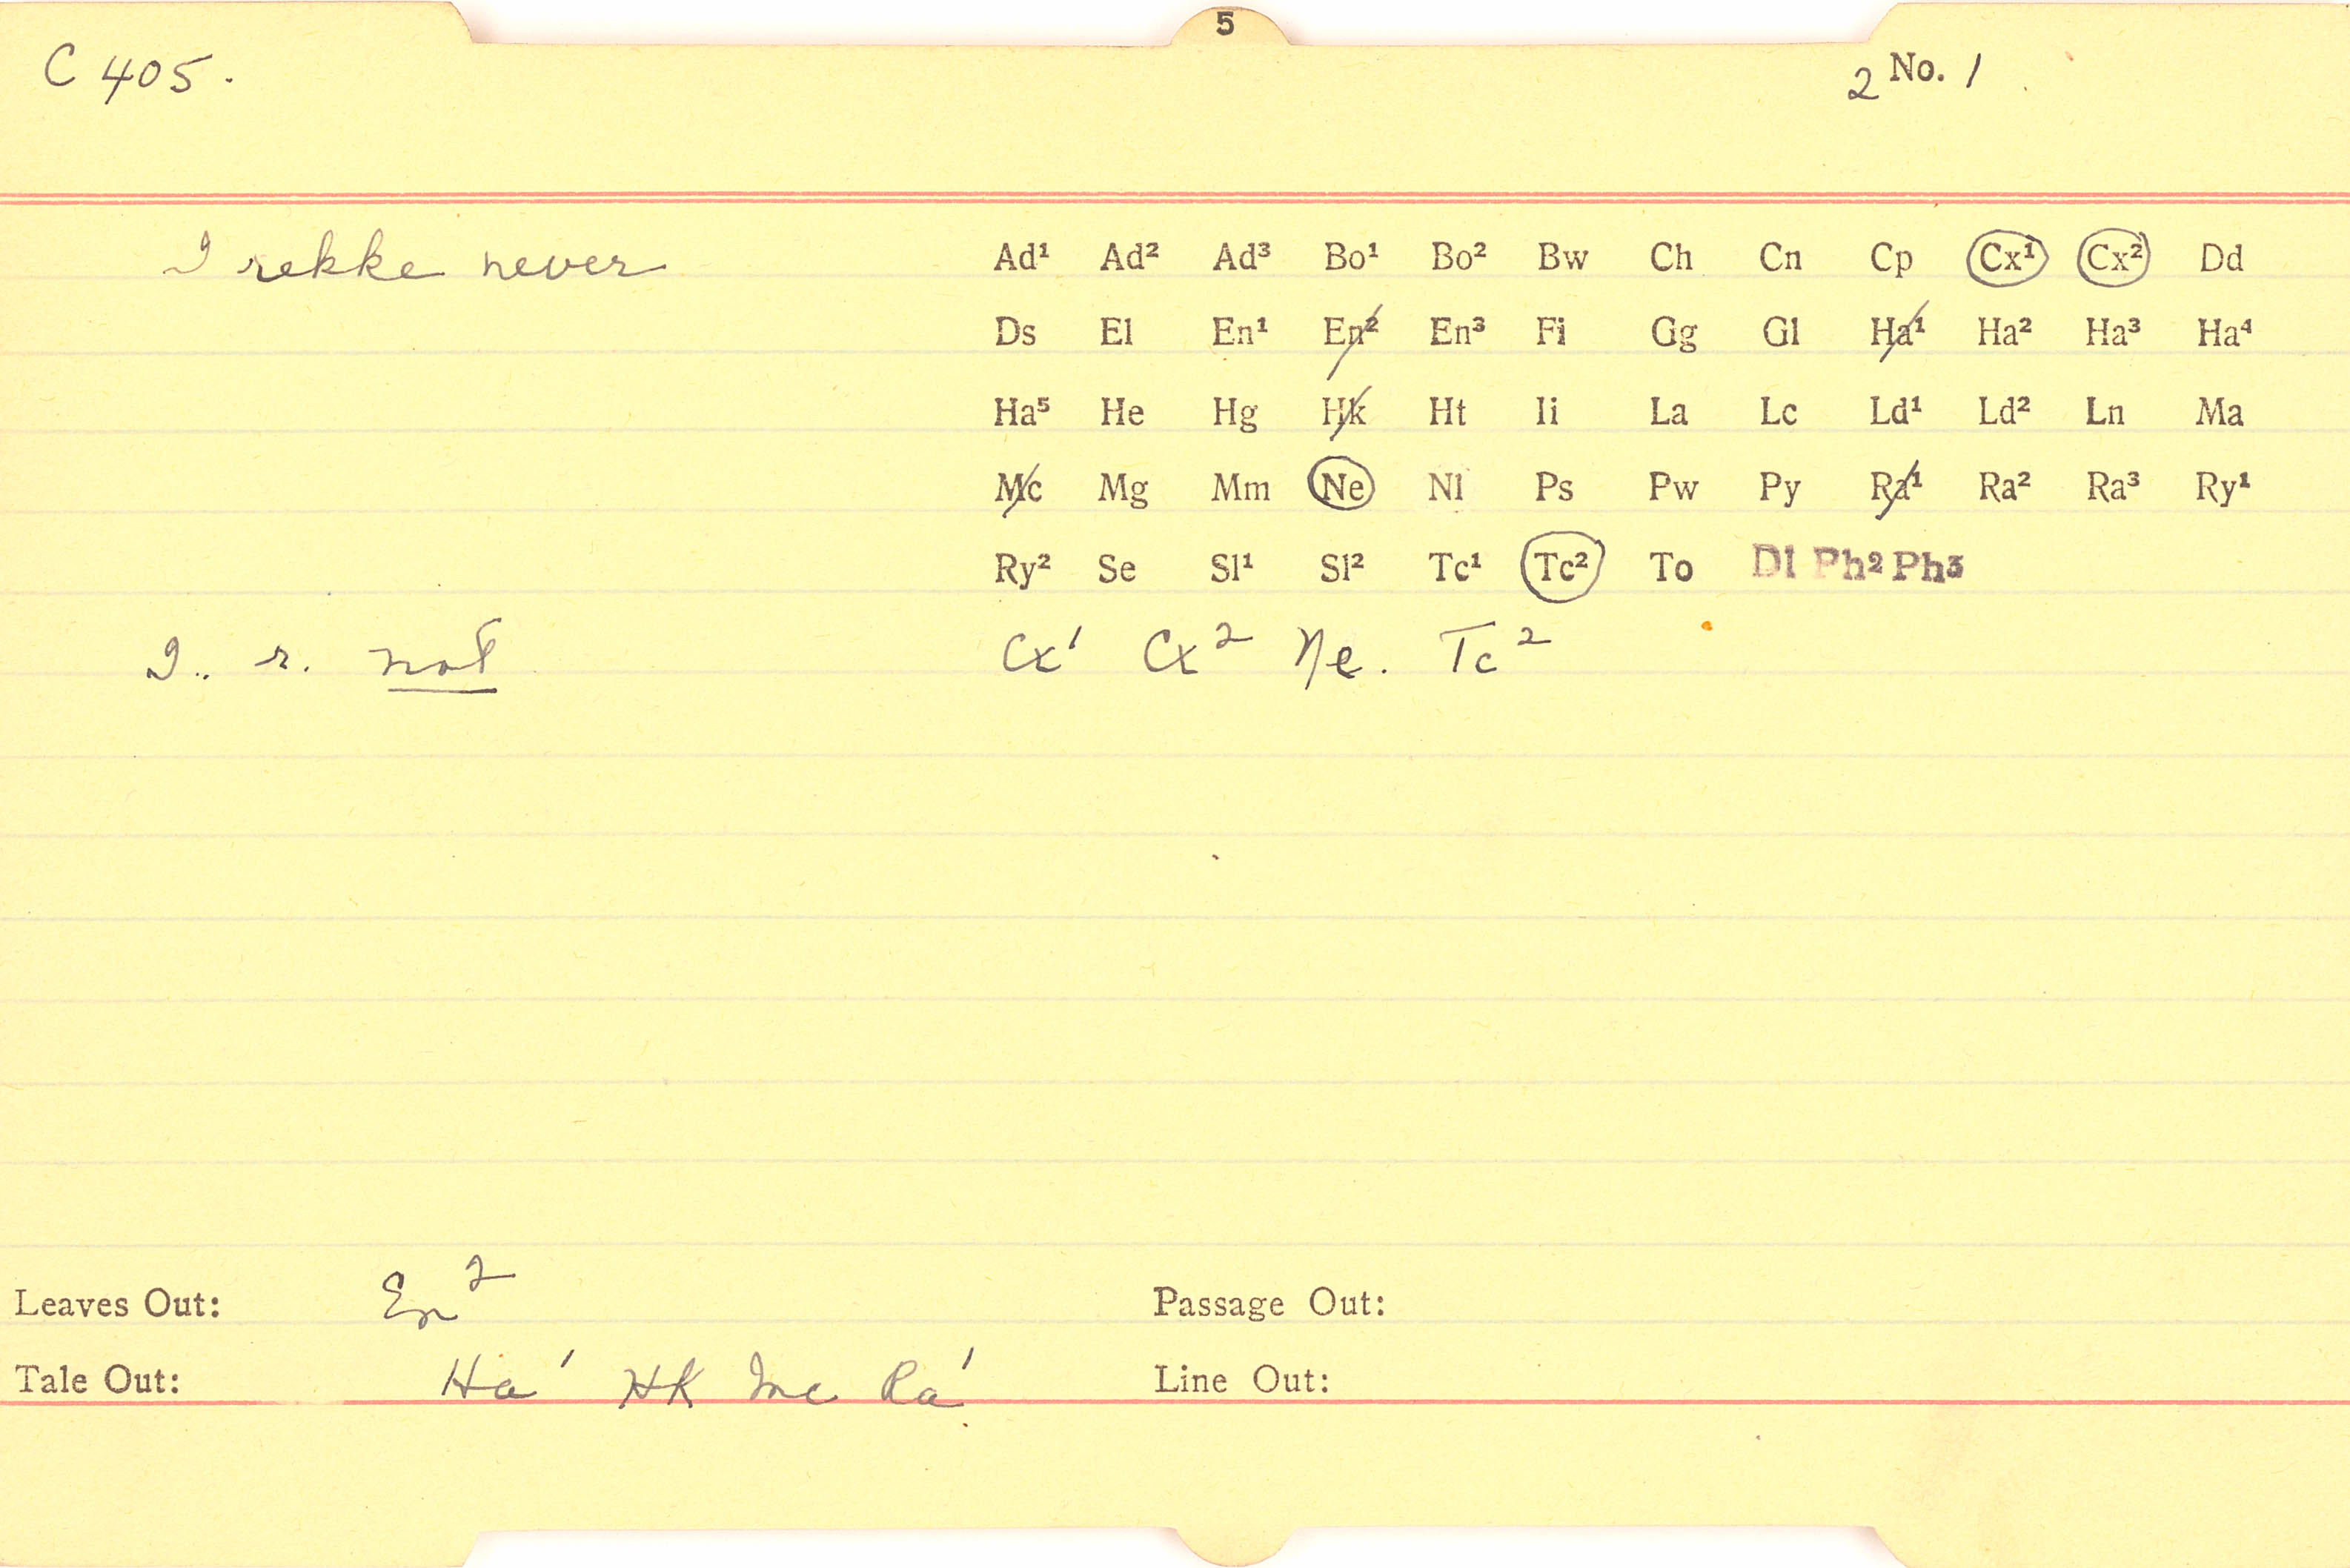 5
C 405.
2 No. 1
I rekke never
Ad¹ Ad² Ad³ Bo¹ Bo² Bw Ch Cn Cp Cx¹ Cx² Dd
Ds El En¹ En² En³ Fi Gg Gl Ha¹ Ha² Ha³ Ha⁴
Ha⁵ He Hg Hk Ht Ii La Lc Ld¹ Ld² Ln Ma
Mc Mg Mm Ne Nl Ps Pw Py Ra¹ Ra² Ra³ Ry¹
Ry² Se Sl¹ Sl² Tc¹ Tc² To Dl Ph² Ph³
I. r. not Cx¹ Cx² Ne. Tc²
Leaves Out: En² Passage Out:
Tale Out: Ha¹ Hk Mc Ra¹ Line Out: